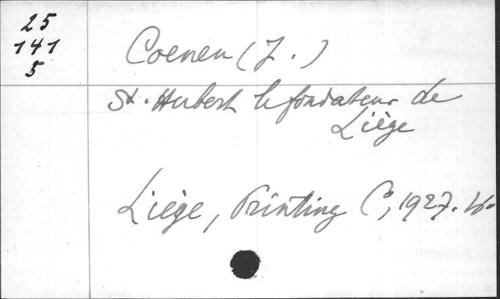 25
141
5
Coenen (J.)
St. Hubert le fondateur de
Liège
Liège, Printing C°, 1927. 4°